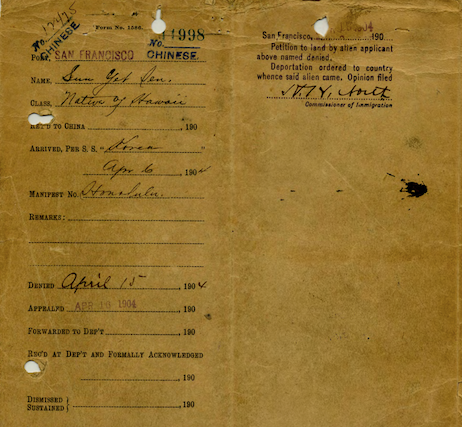 No. 12475
CHINESE
Form No. 1586.
No. 14998
CHINESE.
PORT, SAN FRANCISCO
NAME, Sun Yat Sen.
CLASS, Native of Hawaii
RET'D TO CHINA , 190
ARRIVED, PER S. S. "Korea"
Apr 6 190
MANIFEST NO. Honolulu.
REMARKS:
DENIED April 15 , 1904
APPEALED APR 16 1904
FORWARDED TO DEP'T , 190
REC'D AT DEP'T AND FORMALLY ACKNOWLEDGED
, 190
DISMISSED
SUSTAINED } , 190
San Francisco, 1904 190
Petition to land by alien applicant
above named denied.
Deportation ordered to country
whence said alien came. Opinion filed
H. H. North
Commissioner of Immigration